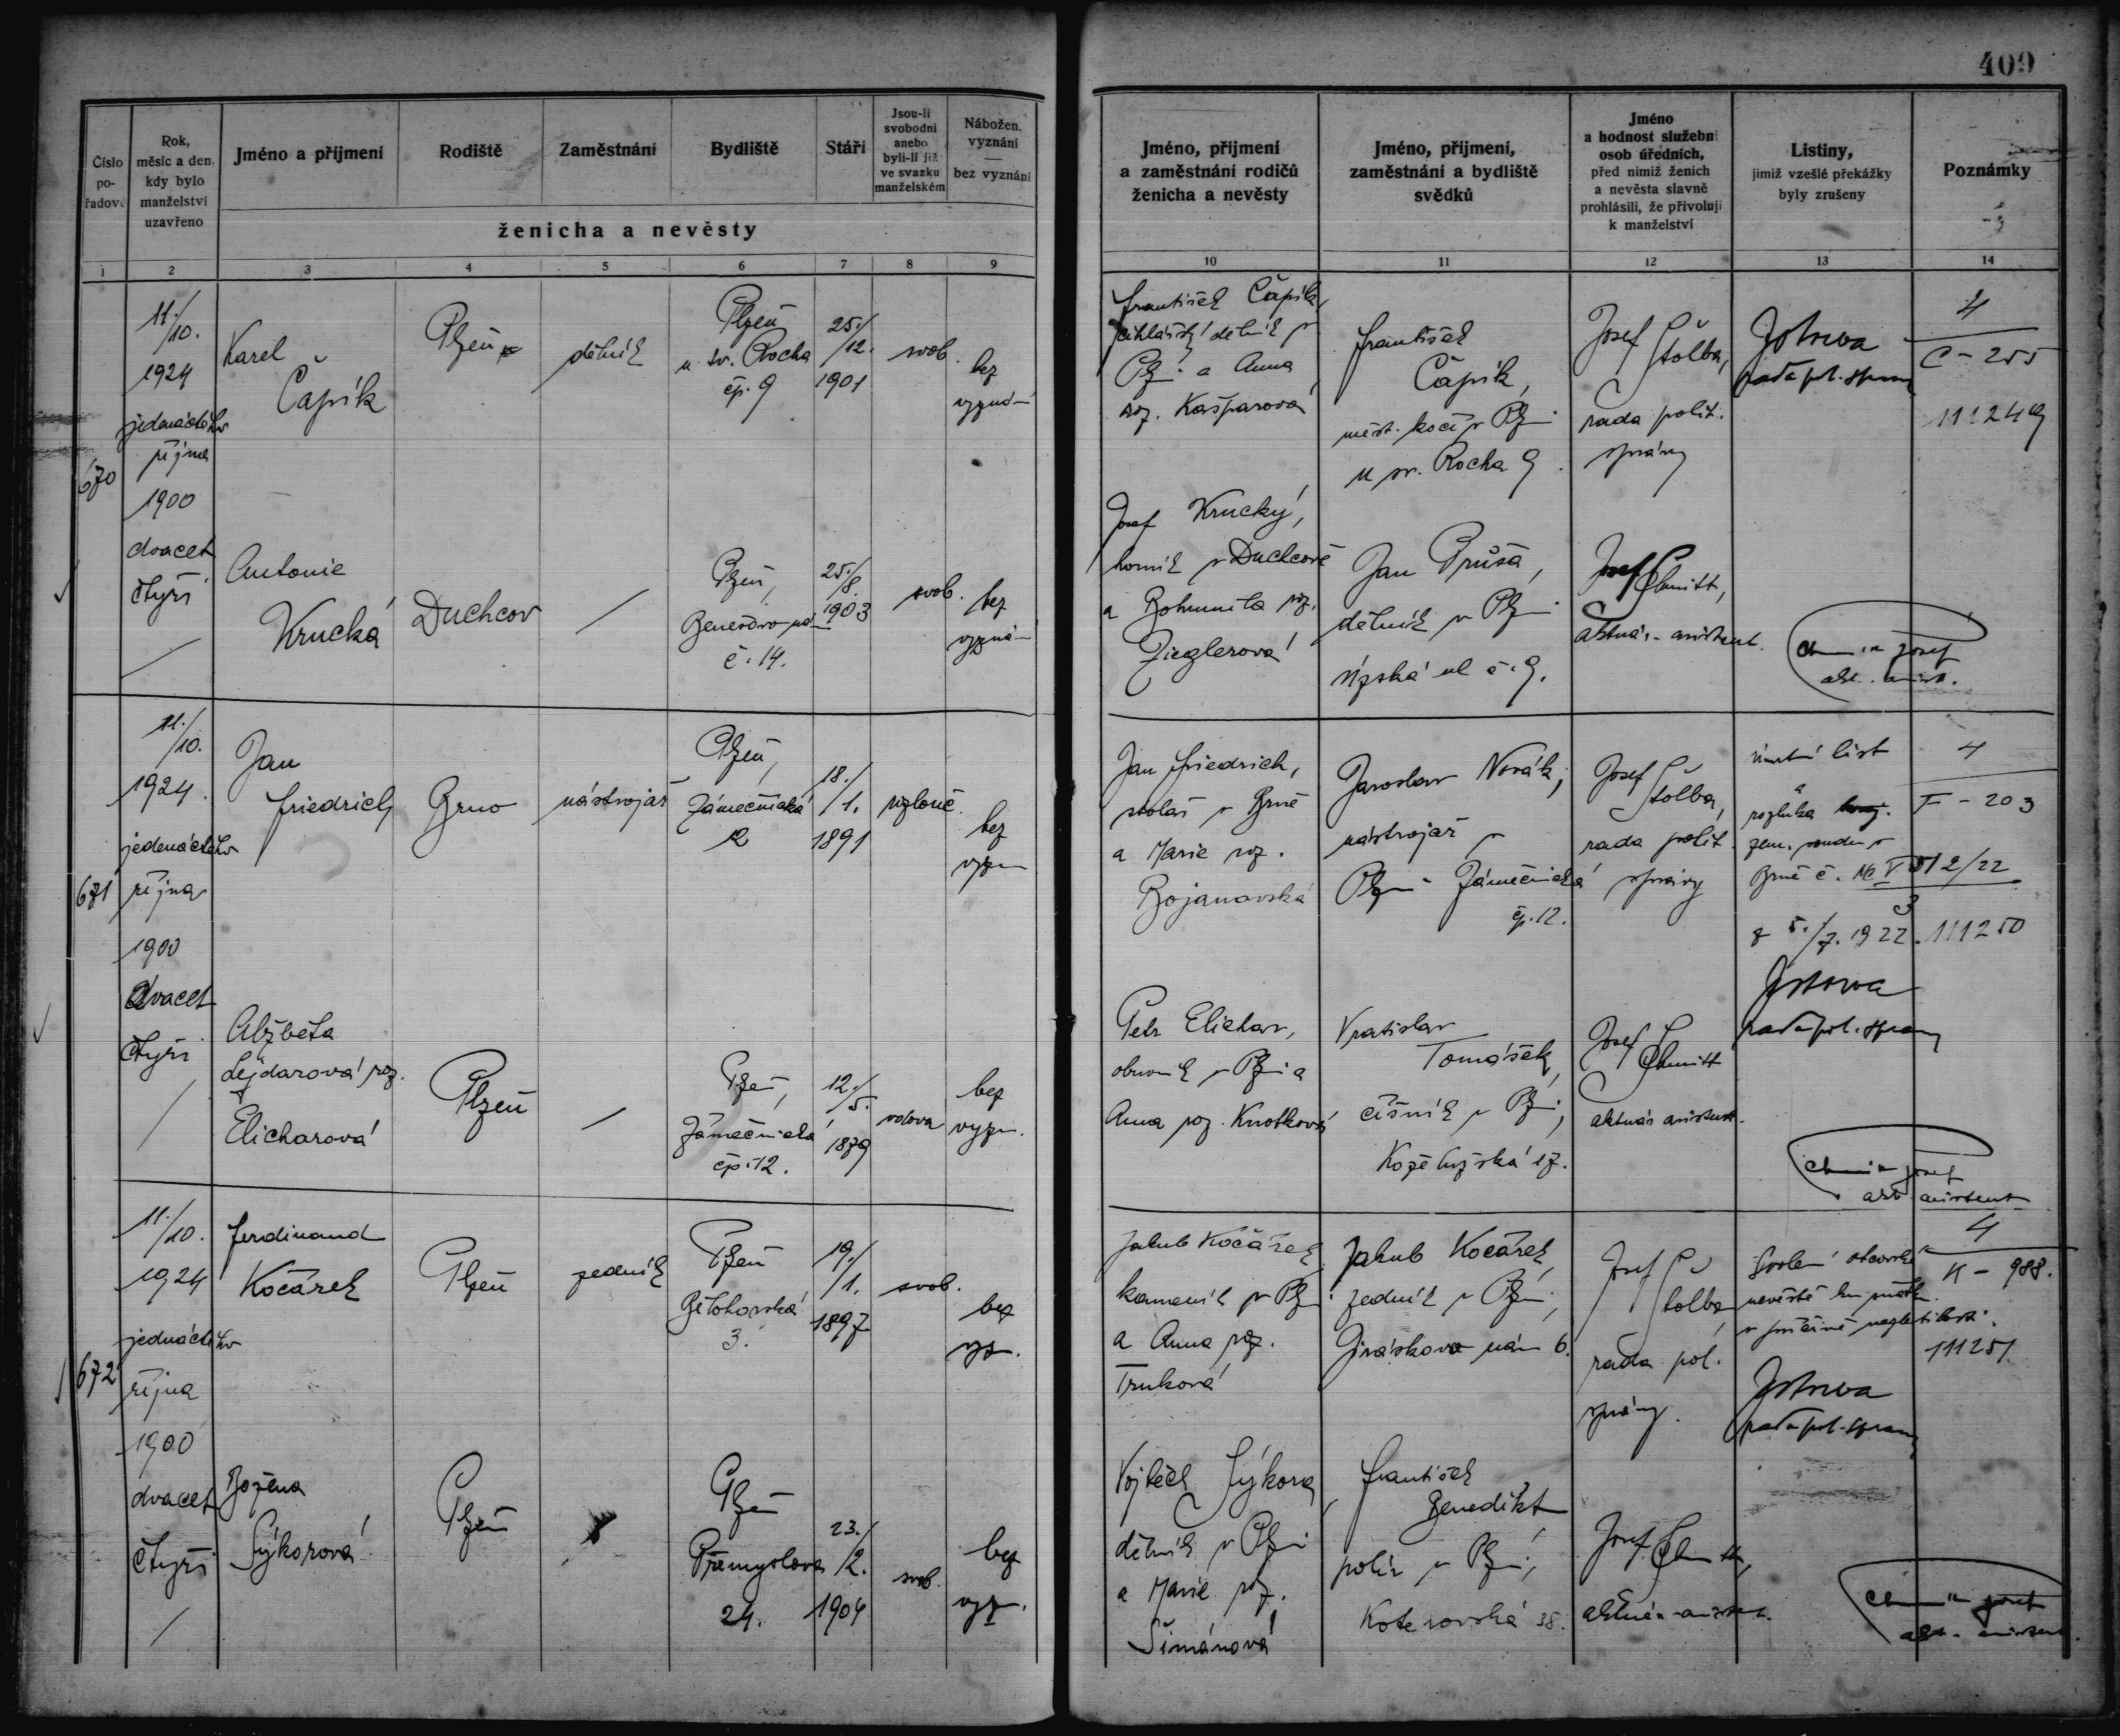 409
Číslo
po-
řadové
Rok,
měsíc a den,
kdy bylo
manželství
uzavřeno
Jméno a příjmení
Rodiště
Zaměstnání
Bydliště
Stáří
Jsou-li
svobodni
anebo
byli-li již
ve svazku
manželském
Nábožen.
vyznání
bez vyznání
ženicha a nevěsty
Jméno, příjmení
a zaměstnání rodičů
ženicha a nevěsty
Jméno, příjmení,
zaměstnání a bydliště
svědků
Jméno
a hodnost služební
osob úředních,
před nimiž ženich
a nevěsta slavně
prohlásili, že přivolují
k manželství
Listiny,
jimiž vzešlé překážky
byly zrušeny
Poznámky
1 2 3 4 5 6 7 8 9
10 11 12 13 14
670
11./
10.
1924
jedenáctého
října
1900
dvacet
čtyři
Karel
Čapík
Plzeň
dělník
Plzeň
u sv. Rocha
čp. 9
25./
12.
1901
svob.
bez
vyznání
František Čapík,
cihlářský dělník v
Plzni a Anna
roz. Kašparová
František
Čapík,
měst. kočí v Plzni
u sv. Rocha 9.
Josef
Štolba,
rada polit.
správy
rada pol. správy
4
C - 255
111249
Antonie
Krucká
Duchcov
Plzeň,
Benešovo nám
č. 14.
25./
8.
1903
svob.
bez
vyznání
Josef Krucký,
horník v Duchcově
a Bohumila roz.
Zieglerová
Jan Průša,
dělník v Plzni
Řípská ul č. 9.
Josef
Chmitt,
aktuár. asistent.
671
11./
10.
1924.
jedenáctého
října
1900
dvacet
čtyři
Jan
Friedrich
Brno
nástrojář
Plzeň,
Zámečnická
2
18./
1.
1891
rozlouč.
bez
vyzn
Jan Friedrich,
stolař v Brně
a Marie roz.
Bojanovská
Jaroslav Novák,
nástrojář v
Plzni Zámečnická
čp. 12.
Josef
Štolba,
rada polit.
správy
úmrtní list
a
rozluka
zem. soudu v
Brně č.
z 5./7. 1922.
rada pol. správy
4
F - 203
111250
Alžběta
Lejdarová roz.
Elicharová
Plzeň
Plzeň,
Zámečnická
čp. 12.
12./
5.
1879
vdova
bez
vyzn.
Petr Elichar,
obuvník v Plzni a
Anna roz. Knotková
Vratislav
Tomášek,
číšník v Plzni,
Koželužská 17.
Josef
Chmitt
aktuár asistent.
672
11./
10.
1924
jedenáctého
října
1900
dvacet
čtyři
Ferdinand
Kočárek
Plzeň
zedník
Plzeň
Bělohorská
3.
19./
1.
1897
svob.
bez
vyz.
Jakub Kočárek
kameník v Plzni
a Anna roz.
Trnková
Jakub Kočárek,
zedník v Plzni,
Jiráskovo nám 6.
Josef
Štolba
rada pol.
správy.
rada pol. správy
4
K - 988.
111251.
Božena
Sýkorová
Plzeň
Plzeň
Přemyslova
24.
23./
2.
1904
svob.
bez
vyz.
Vojtěch Sýkora,
dělník v Plzni
a Marie roz.
Šimánová
František
Benedikt
polír v Plzni,
Koterovská 38.
Josef Chmitt,
aktuár. asistent.